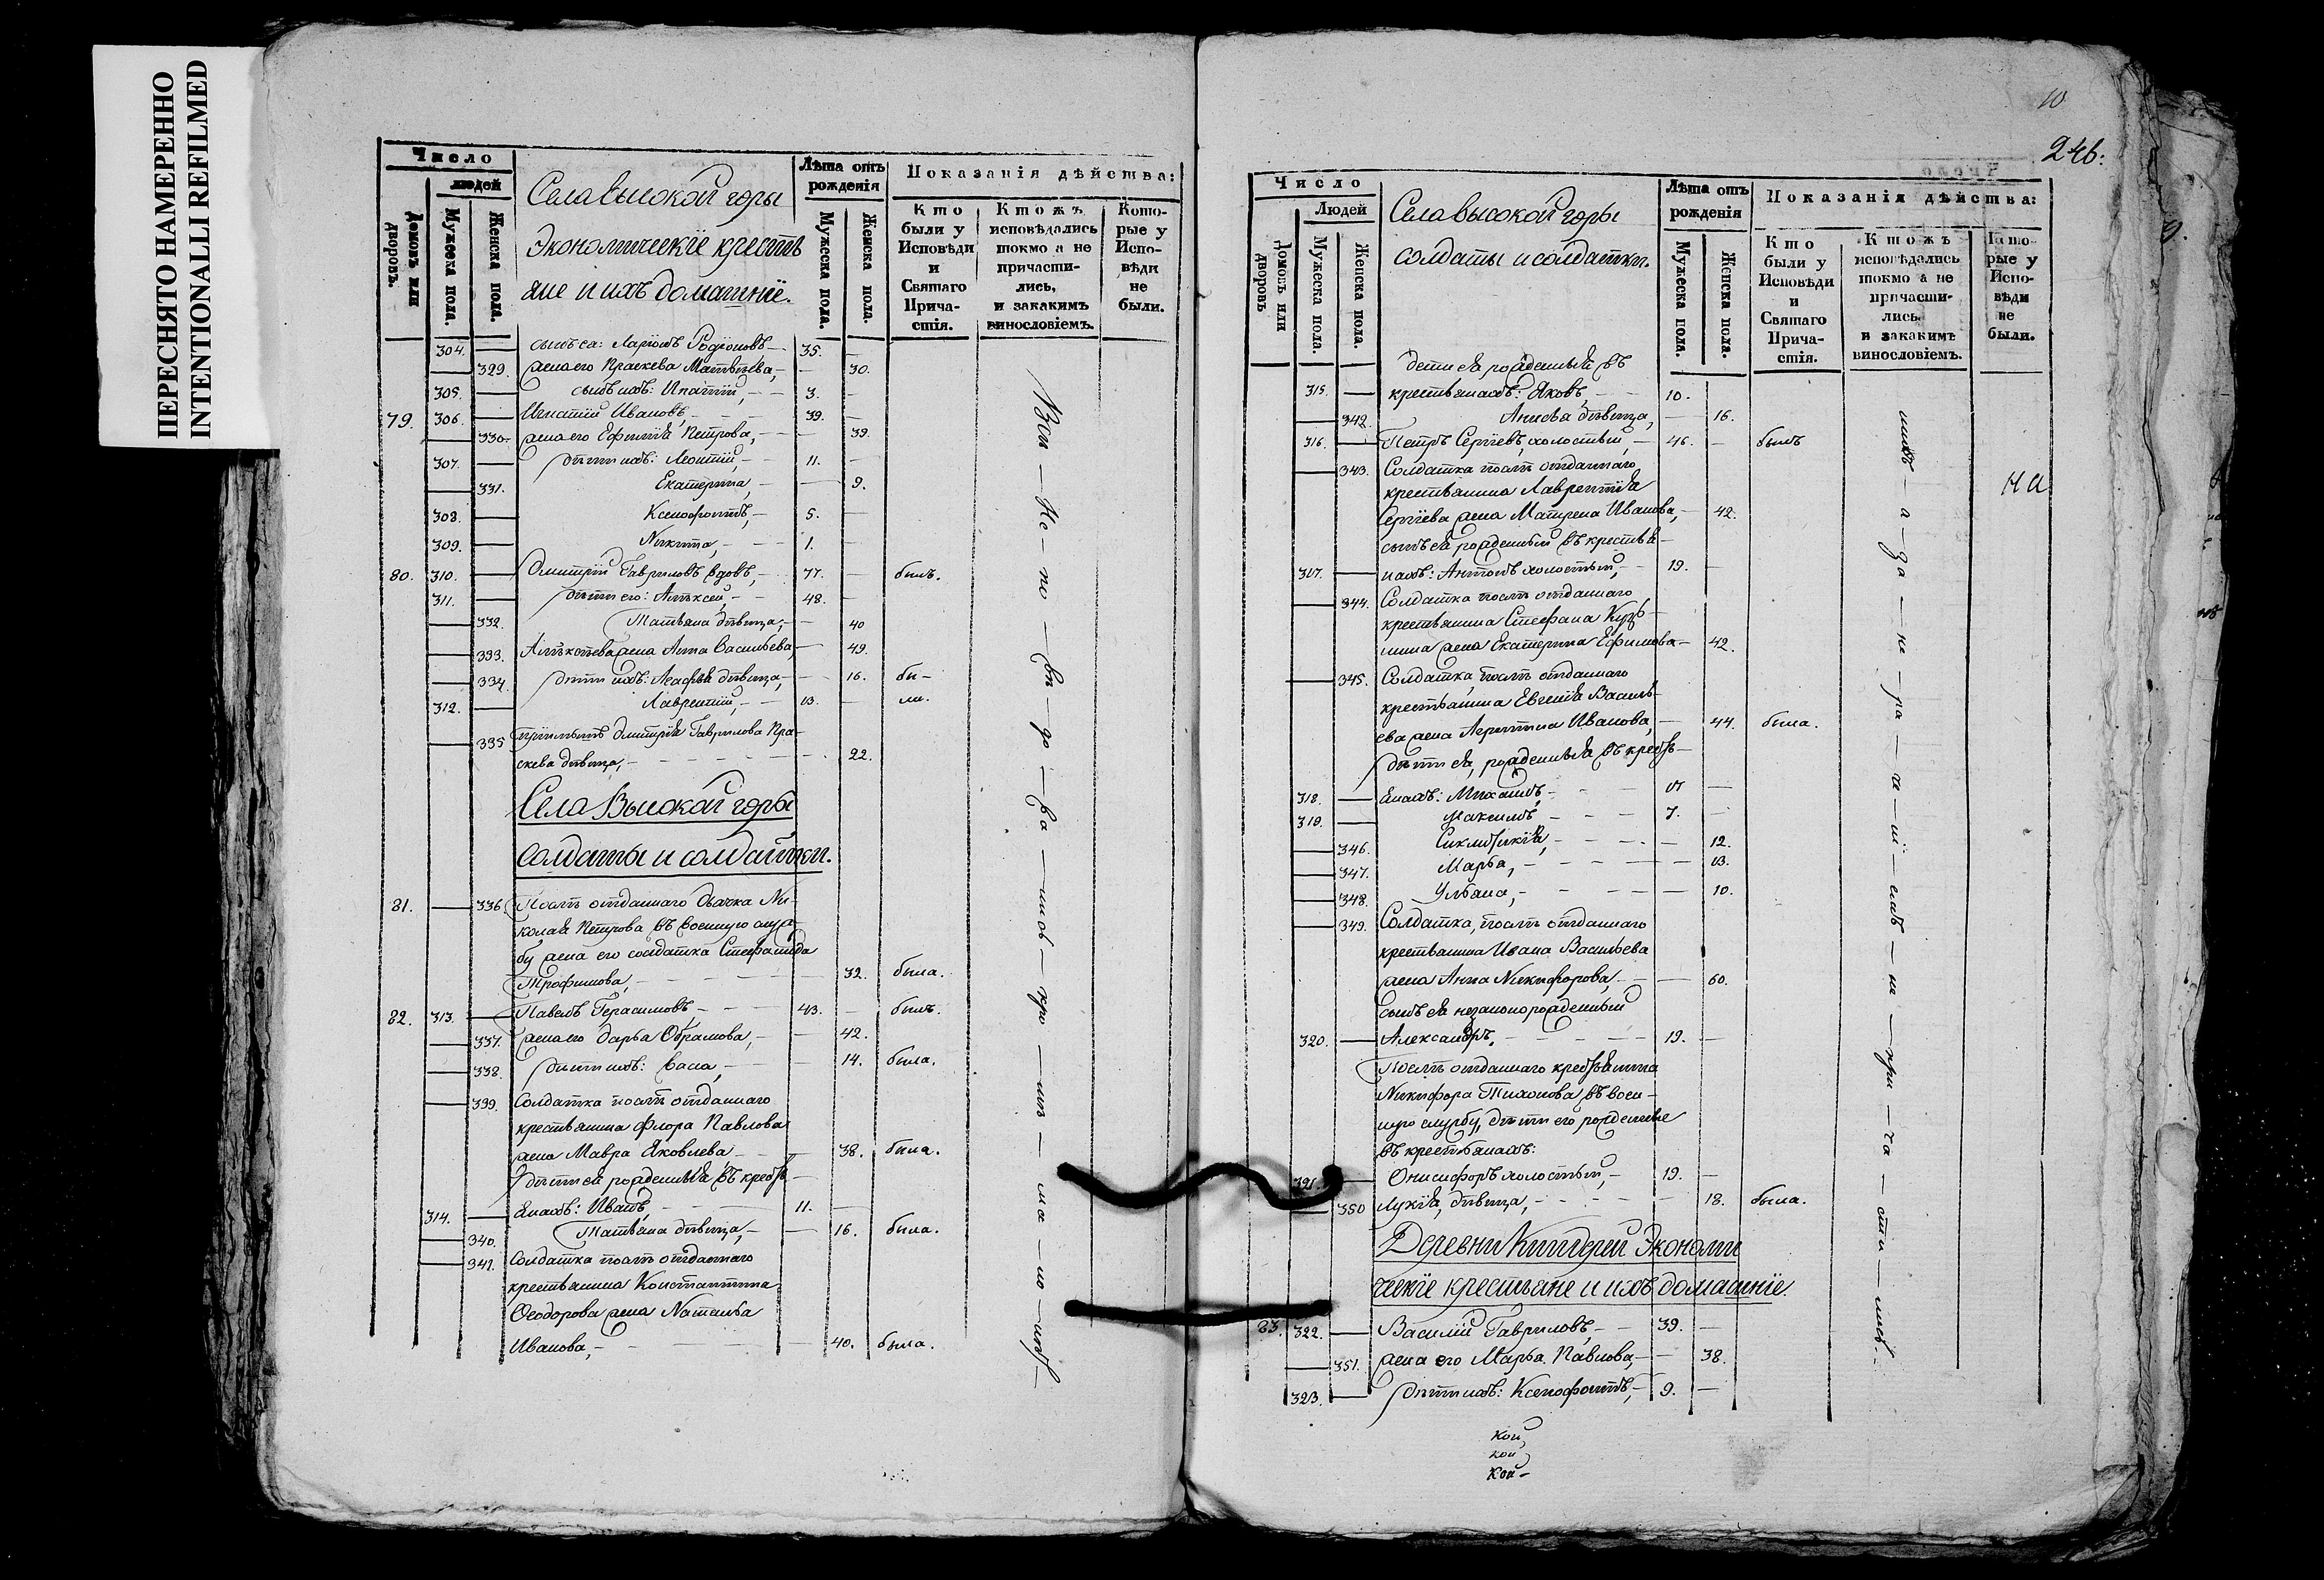 ПЕРЕСНЯТО НАМЕРЕННО
INTENTIONALLI REFILMED
Число
людей
Домовъ или дворовъ.
Мужеска пола.
Женска пола.
Села высокой горы
Экономическїе крестья
яне и ихъ домашнїе.
Лѣта отъ рожденія
Мужеска пола.
Женска пола.
Показанія дѣйства:
Кто были у Исповѣди и Святаго Причастія.
Ктожъ исповѣдались токмо а не причастились, и закакимъ винословіемъ.
Которые у Исповѣди не были.
304. сынъ ея: Ларїонъ Родїоновъ 35.
329. жена его Праскева Матвѣева, 30.
305. сынъ ихъ: Ипатїй, 3.
79. 306. Игнатїй Ивановъ, 39.
330. жена его Ефимїя Петрова, 39.
307. дѣти ихъ: Леонтїй, 11.
331. Екатерина, 9.
308. Ксенофонтъ, 5.
309. Никита, 1.
80. 310. Дмитрїй Гавриловъ вдовъ, 77. былъ.
311. дѣти его: Алѣксей, 48.
332. Татьяна дѣвица, 40
333. Алѣксѣева жена Анна Васильева, 49.
334. дѣти ихъ: Агафья дѣвица, 16. бы-
312. Лаврентїй, 13. ли.
335 Дмитрїя Гаврилова Пра-
скева дѣвица, 22.
Села Высокой горы
солдаты и солдатки.
81. 336. Послѣ отданнаго дьячка Ни-
колая Петрова въ военную служ-
бу жена его солдатка Стефанида
Трофимова, 32. была.
82. 313. Павелъ Герасимовъ, 43. былъ.
337. жена его Дарья Обрамова, 42.
338. дѣти ихъ: Васа, 14. была.
339. Солдатка послѣ отданнаго
крестьянина Флора Павлова
жена Мавра Яковлева 38. была.
дѣти ея рожденныя въ кресть-
314. янахъ: Иванъ, 11.
340. Татьяна дѣвица, 16. была.
341. Солдатка послѣ отданнаго
крестьянина Константина
Ѳеодорова жена Наталья
Иванова, 40. была.
10
246.
Число
Людей
Домовъ или дворовъ
Мужеска пола.
Женска пола.
Села высокой горы
солдаты и солдатки.
Лѣта отъ рожденія
Мужеска пола.
Женска пола.
Показанія дѣйства:
Кто были у Исповѣди и Святаго Причастія.
Ктожъ исповѣдались токмо а не причастились, и закакимъ винословіемъ.
Которые у Исповѣди не были.
дети ея рожденныя въ
315. крестьянахъ: Яковъ, 10.
342. Анисья дѣвица, 16.
316. Петръ Сергїевъ, холостый, 46. былъ
343. Солдатка послѣ отданнаго
крестьянина Лаврентїя
Сергїева жена Матрена Иванова, 42.
сынъ ея рожденный въ крестья-
317. нахъ: Антонъ холостый, 19.
344. Солдатка послѣ отданнаго
крестьянина Стефана Кузь-
мина жена Екатерина Ефимова 42.
345. Солдатка, послѣ отданнаго
крестьянина Евгенїя Василь-
ева жена Агрипина Иванова, 44. была.
дѣти ея, рожденныя въ кресть-
318. янахъ: Михаилъ,
319. Максимъ, 7.
346. Сиклитикїя, 12.
347. Марья, 13.
348. Ульяна, 10.
349. Солдатка, послѣ отданнаго
крестьянина Ивана Васильева
жена Анна Никифорова, 60.
сынъ ея незаконорожденный
320. Александръ, 19.
Послѣ отданнаго крестьянина
Никифора Тихонова, въ воен-
ную службу, дѣти его рожденные
въ крестьянахъ:
321. Онисифоръ холостый, 19.
350 Лукїя, дѣвица, 18. была.
Деревни Киндерей Экономи
ческїе крестьяне и ихъ домашнїе.
83. 322. Василїй Гавриловъ, 39.
351. жена его Марья Павлова, 38.
323. дѣти ихъ: Ксенофонтъ, 9.
кой,
кой
кой